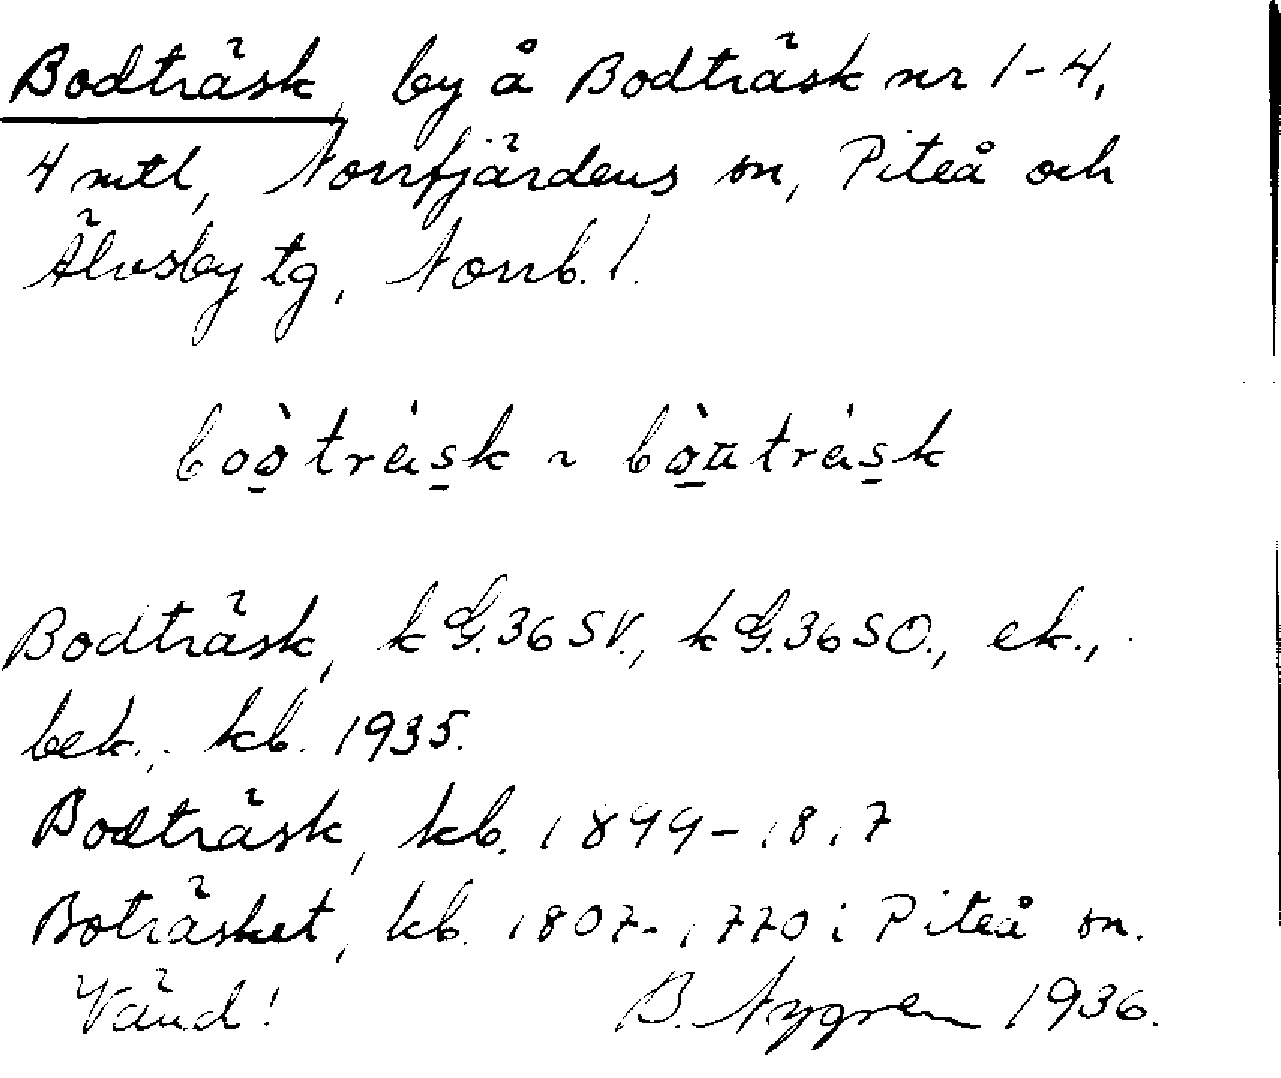 Bodträsk, by å Bodträsk nr 1-4,
4 mtl, Norrfjärdens sn, Piteå och
Älvsby tg, Norrb. l.
boo̠̍̀träs̠k ~ bò̠u̠träs̠k
Bodträsk, k G.36 SV., k G.36 SO., ek.,
bek., kb. 1935.
Bodträsk, kb. 1899-1817
Boträsket, kb. 1807-1770 i Piteå sn.
Vänd! B. Nygren 1936.